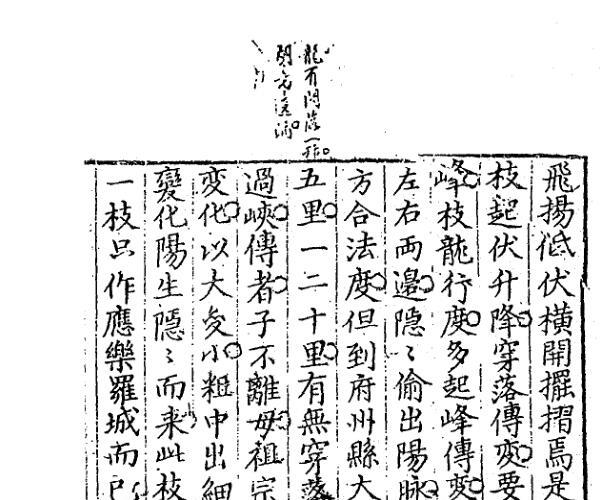 龍有閃落一
飛揚低伏橫開擺摺焉是
枝起伏升降穿落傳变要
峰枝龍行度多起峰傳变
左右兩邊隐〻偷出陽脉
方合法度但到府州縣大
五里一二十里有無穿落
過峽傳者子不離母祖宗
变化以大变小粗中出細
變化陽生隱〻而来此枝
一枝只作應樂羅城而已